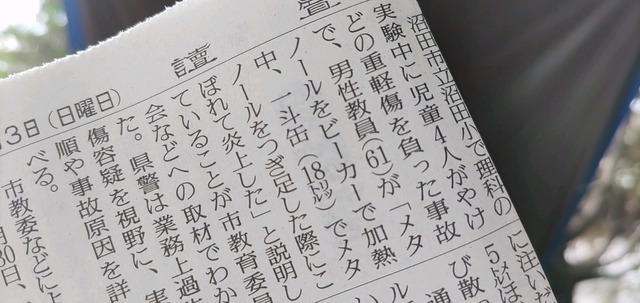 讀
3日(日曜日)
沼田市立沼田小で理科の
実験中に児童4人がやけ
どの重軽傷を負った事故
で、男性教員(61)が「メタ
ノールをビーカーで加熱
中、一斗缶(18リットル)でメタ
ノールをつぎ足した際にこ
ぼれて炎上した」と説明し
ていることが市教育委員
会などへの取材でわか
た。県警は業務上過
傷容疑を視野に、実
順や事故原因を詳
べる。
市教委などによ
月30日、
に注い
5メートルは
び散